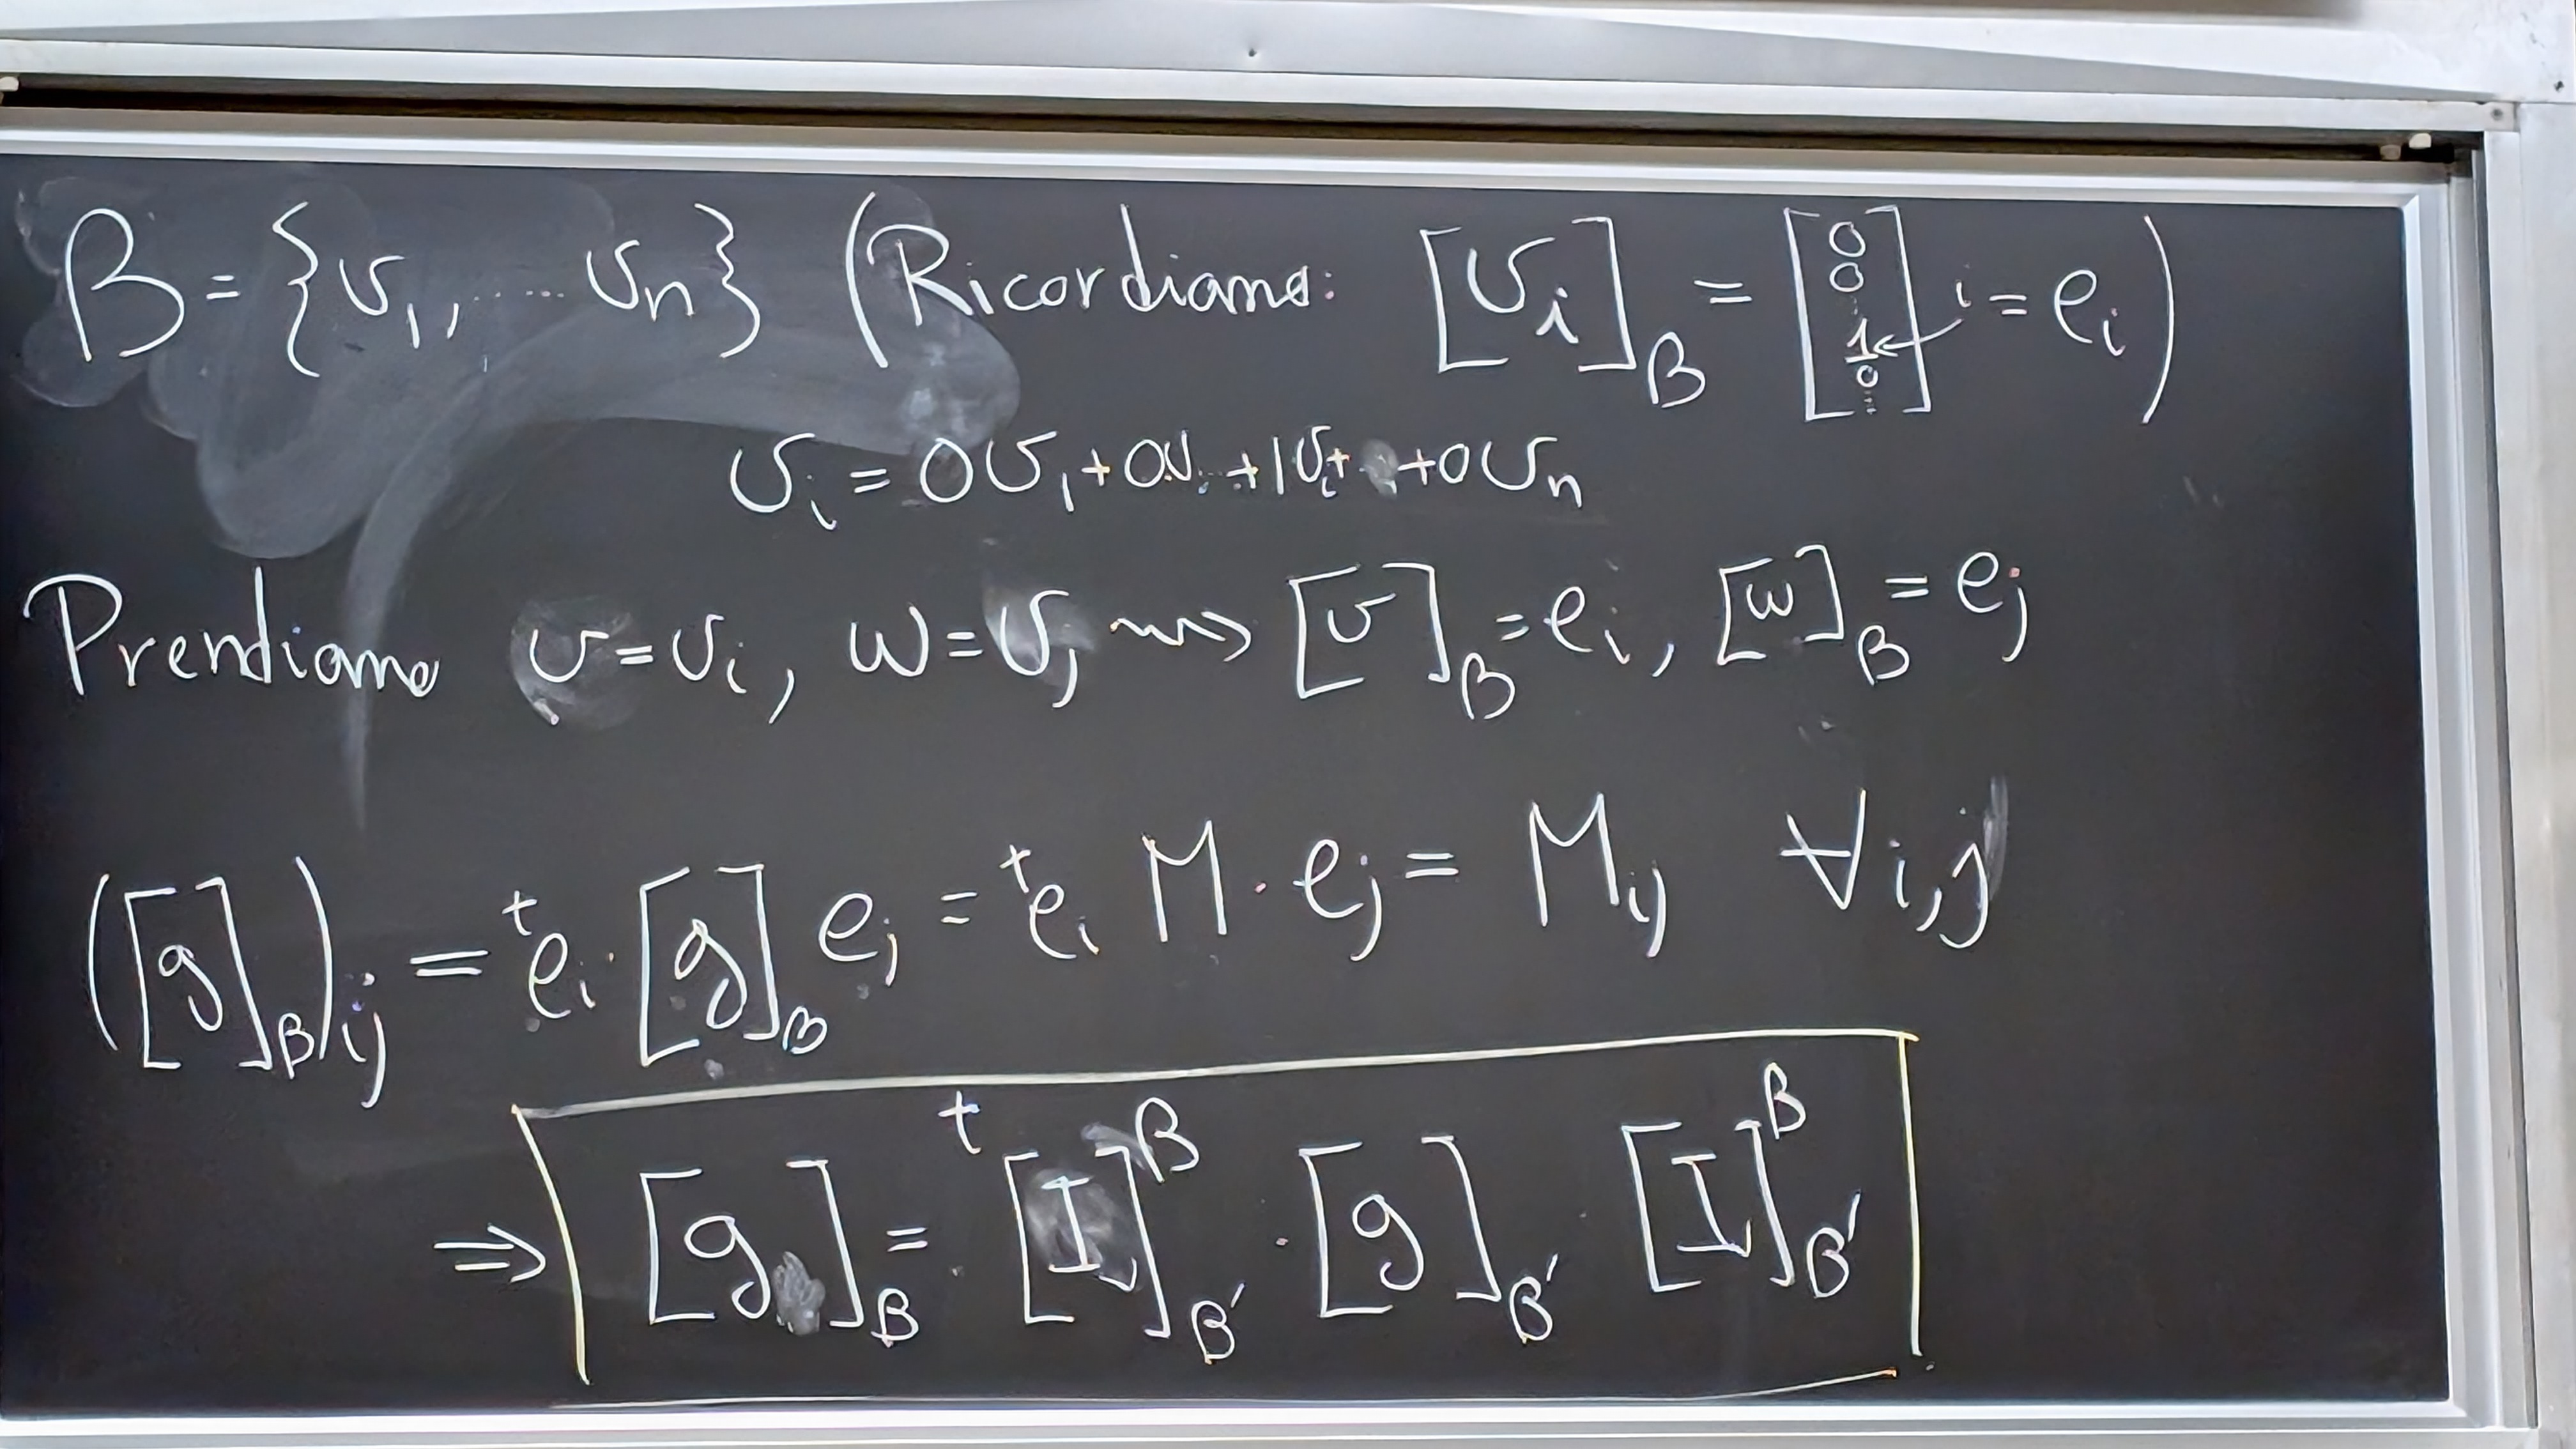 B = {v₁, ..... vₙ} (Ricordiamo: [vᵢ]_B = [0 0 ⋮ 1 0 ⋮] ← i = eᵢ)
vᵢ = 0v₁ + 0v.. + 1vᵢ + .. + 0vₙ
Prendiamo v = vᵢ, w = vⱼ ⇝ [v]_B = eᵢ, [w]_B = eⱼ
([g]_B)ᵢⱼ = ᵗeᵢ · [g]_B eⱼ = ᵗeᵢ M · eⱼ = Mᵢⱼ ∀ i,j
⇒ [g]_B = ᵗ[I]^B_B′ · [g]_B′ · [I]^B_B′